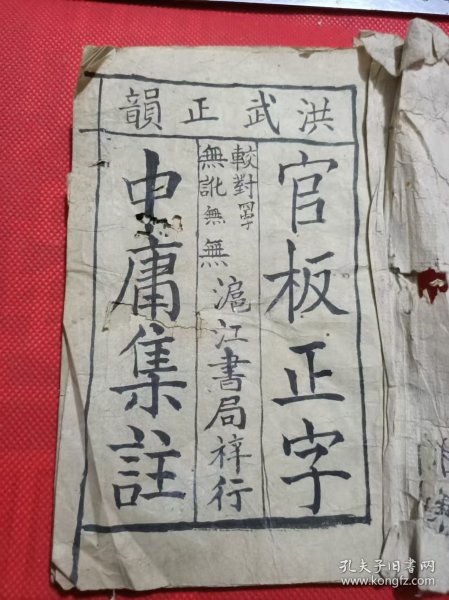 洪武正韻
官板正字
較對
無訛無
無
滬江書局梓行
中庸集註
孔夫子旧书网
www.kongfz.com